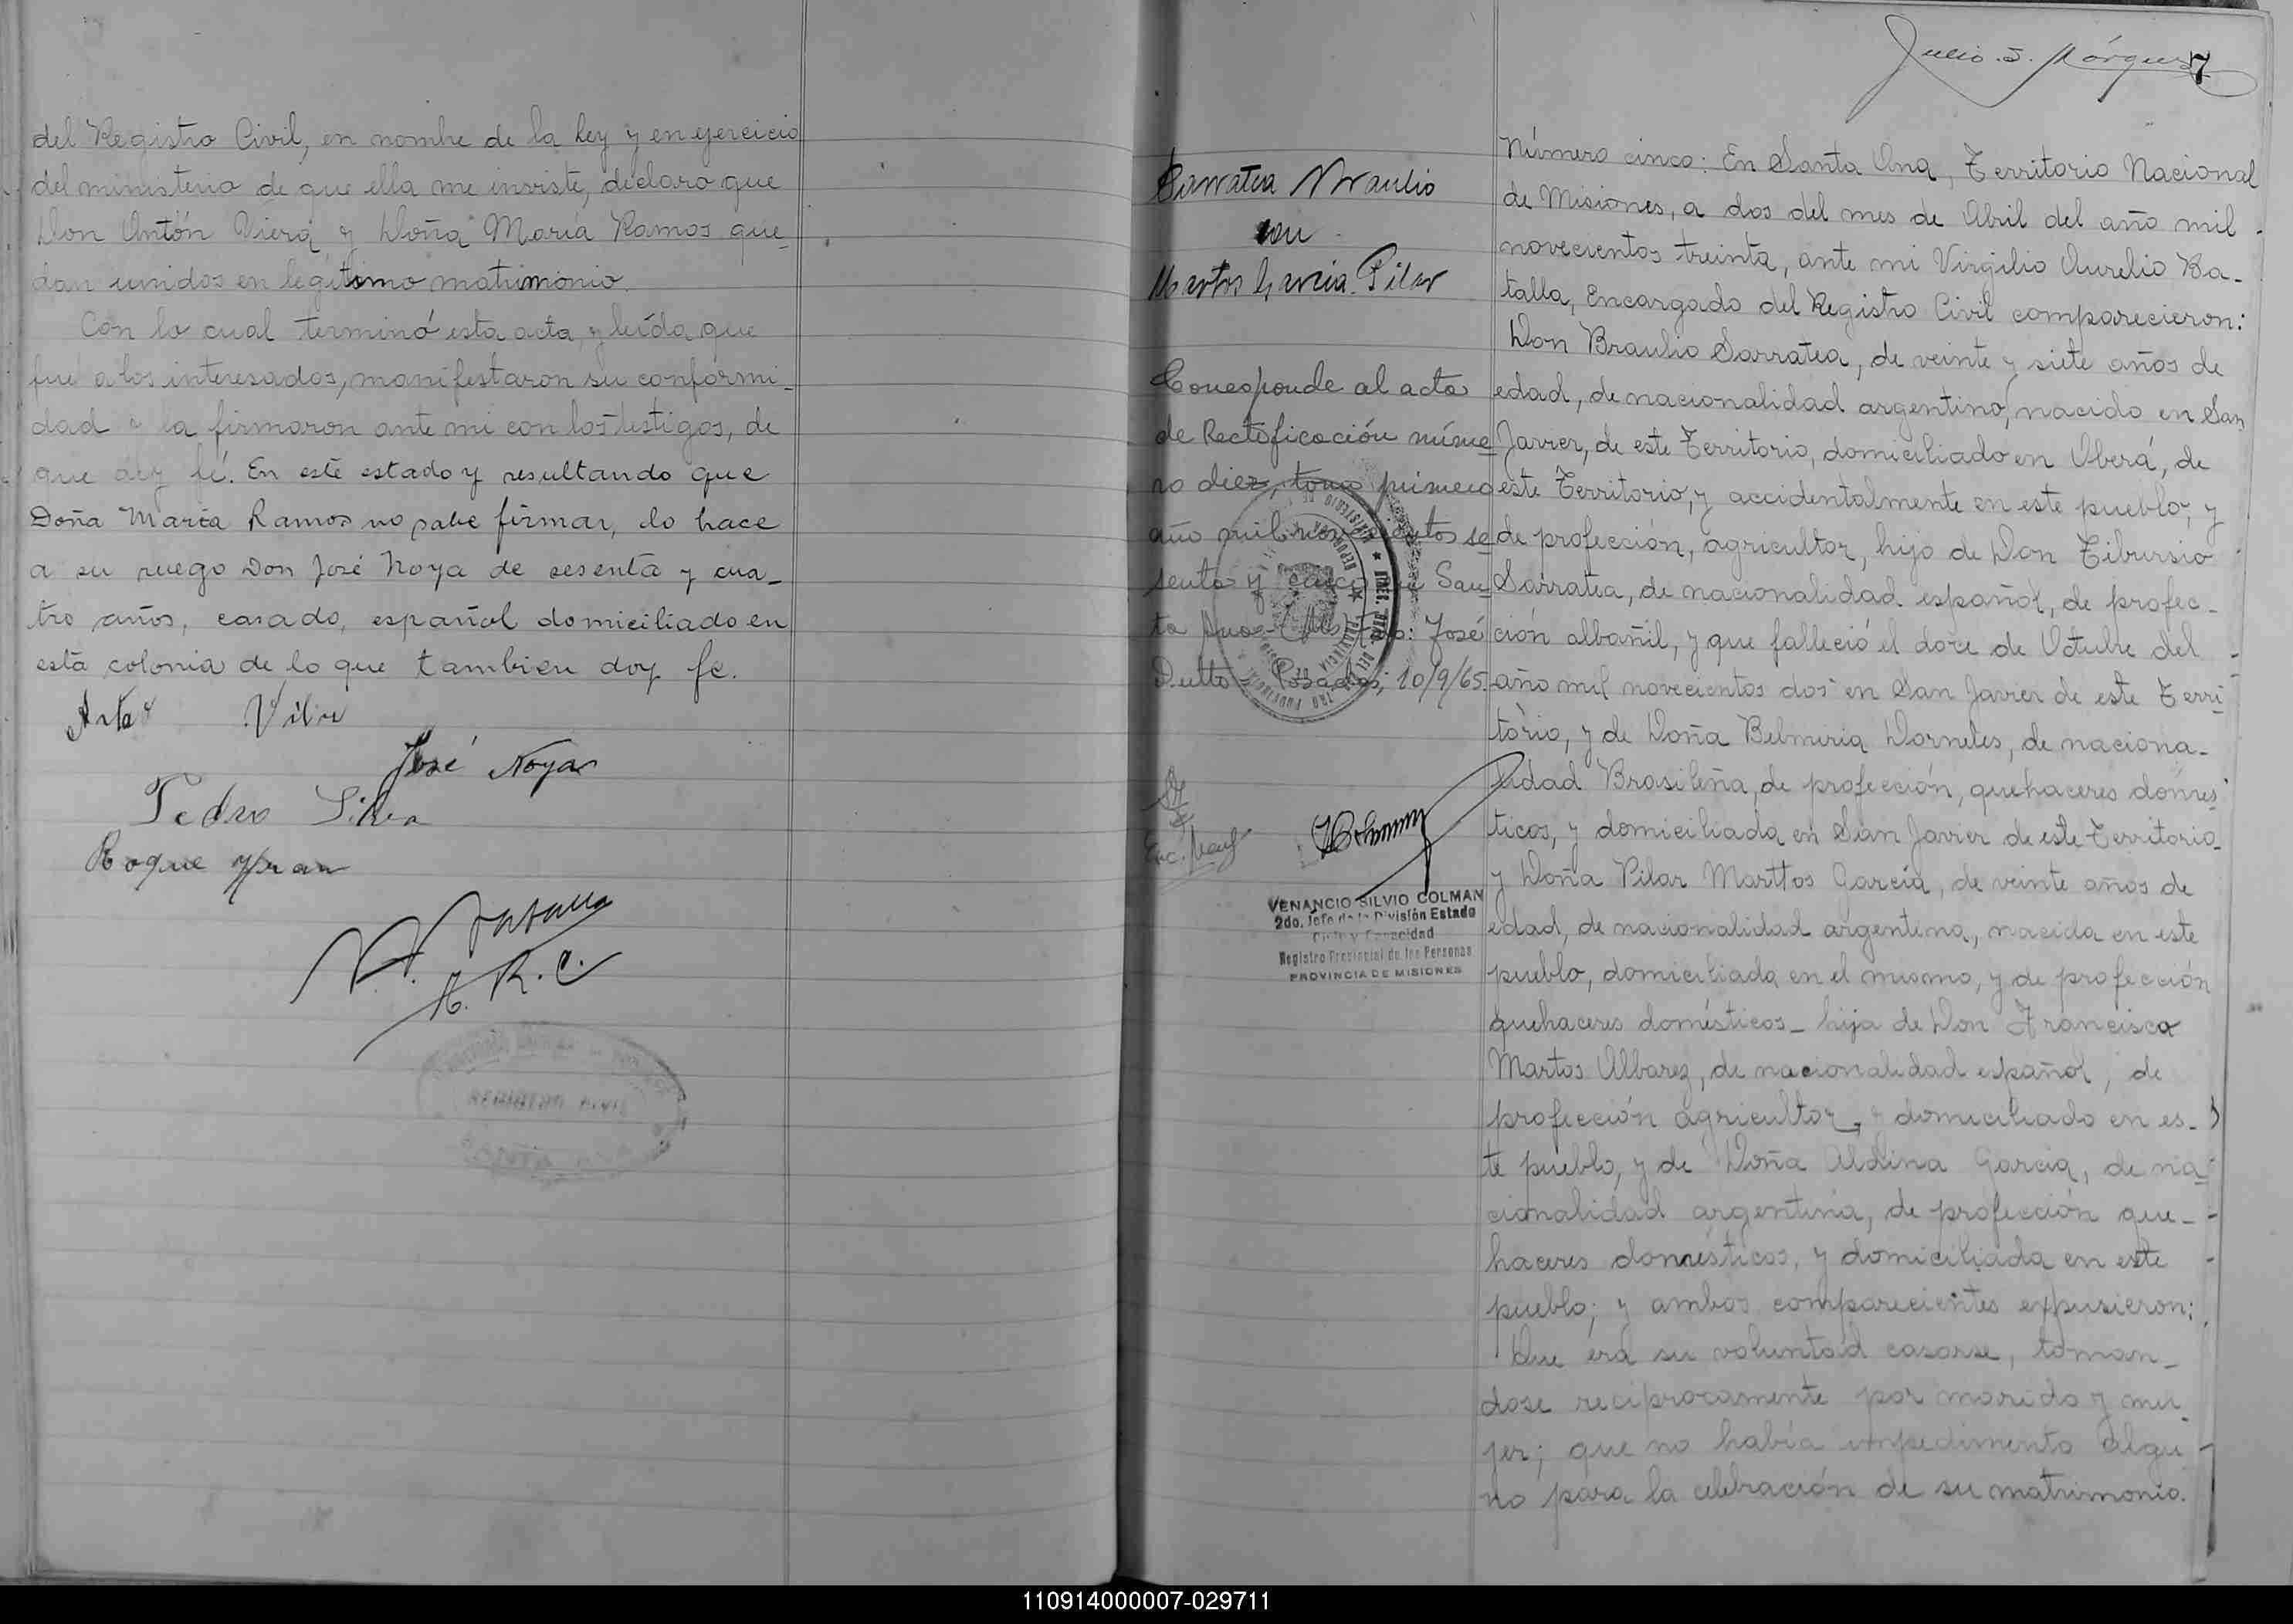 del Registro Civil, en nombre de la ley y en ejercicio
del ministerio de que ella me inviste, declaro que
Don Antón Viera y Doña María Ramos que-
dan unidos en legítimo matrimonio.
Con lo cual terminó esta acta, y leída que
fué a los interesados, manifestaron su conformi-
dad y la firmaron ante mi con los testigos, de
que doy fé. En este estado y resultando que
Doña María Ramos no sabe firmar, lo hace
a su ruego Don José Noya de sesenta y cua-
tro años, casado, español domiciliado en
esta colonia de lo que tambien doy fe.
José Noya
Pedro Silva
Roque
E. R. C.
REGISTRO CIVIL
Sarratea Braulio
con
Martos Garcia Pilar
Corresponde al acta
de Rectificación núme-
ro diez, tomo primero
año mil novecientos se-
senta y cinco de San-
ta Ana- José
Dutto - Posadas, 10/9/65
VENANCIO SILVIO COLMAN
2do. Jefe de la División Estado
Civil y Capacidad
Registro Provincial de las Personas
PROVINCIA DE MISIONES
Julio S. Márquez
7
Número cinco: En Santa Ana, Territorio Nacional
de Misiones, a dos del mes de Abril del año mil
novecientos treinta, ante mi Virgilio Aurelio Ba-
talla, Encargado del Registro Civil comparecieron:
Don Braulio Sarratea, de veinte y siete años de
edad, de nacionalidad argentino, nacido en San
Javier, de este Territorio, domiciliado en Oberá, de
este Territorio, y accidentalmente en este pueblo, y
de profección, agricultor, hijo de Don Tibursio
Sarratea, de nacionalidad español, de profec-
ción albañil, y que falleció el doce de Octubre del
año mil novecientos dos en San Javier de este Terri-
torio, y de Doña Belmiria Dorneles, de naciona-
lidad Brasileña, de profección, quehaceres domés-
ticos, y domiciliada en San Javier de este Territorio
y Doña Pilar Marttos García, de veinte años de
edad, de nacionalidad argentina, nacida en este
pueblo, domiciliada en el mismo, y de profección
quehaceres domésticos - hija de Don Francisco
Martos Albarez, de nacionalidad español, de
profección agricultor, y domiciliado en es-
te pueblo, y de Doña Aldina García, de na-
cionalidad argentina, de profección que-
haceres domésticos, y domiciliada en este
pueblo; y ambos comparecientes expusieron:
Que era su voluntad casarse, toman-
dose reciprocamente por marido y mu-
jer; que no había impedimento algu-
no para la celebración de su matrimonio.
110914000007-029711